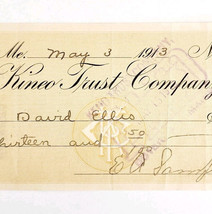 Me. May 3 1913 N
Kineo Trust Company
David Ellis
hirteen and 50
E A